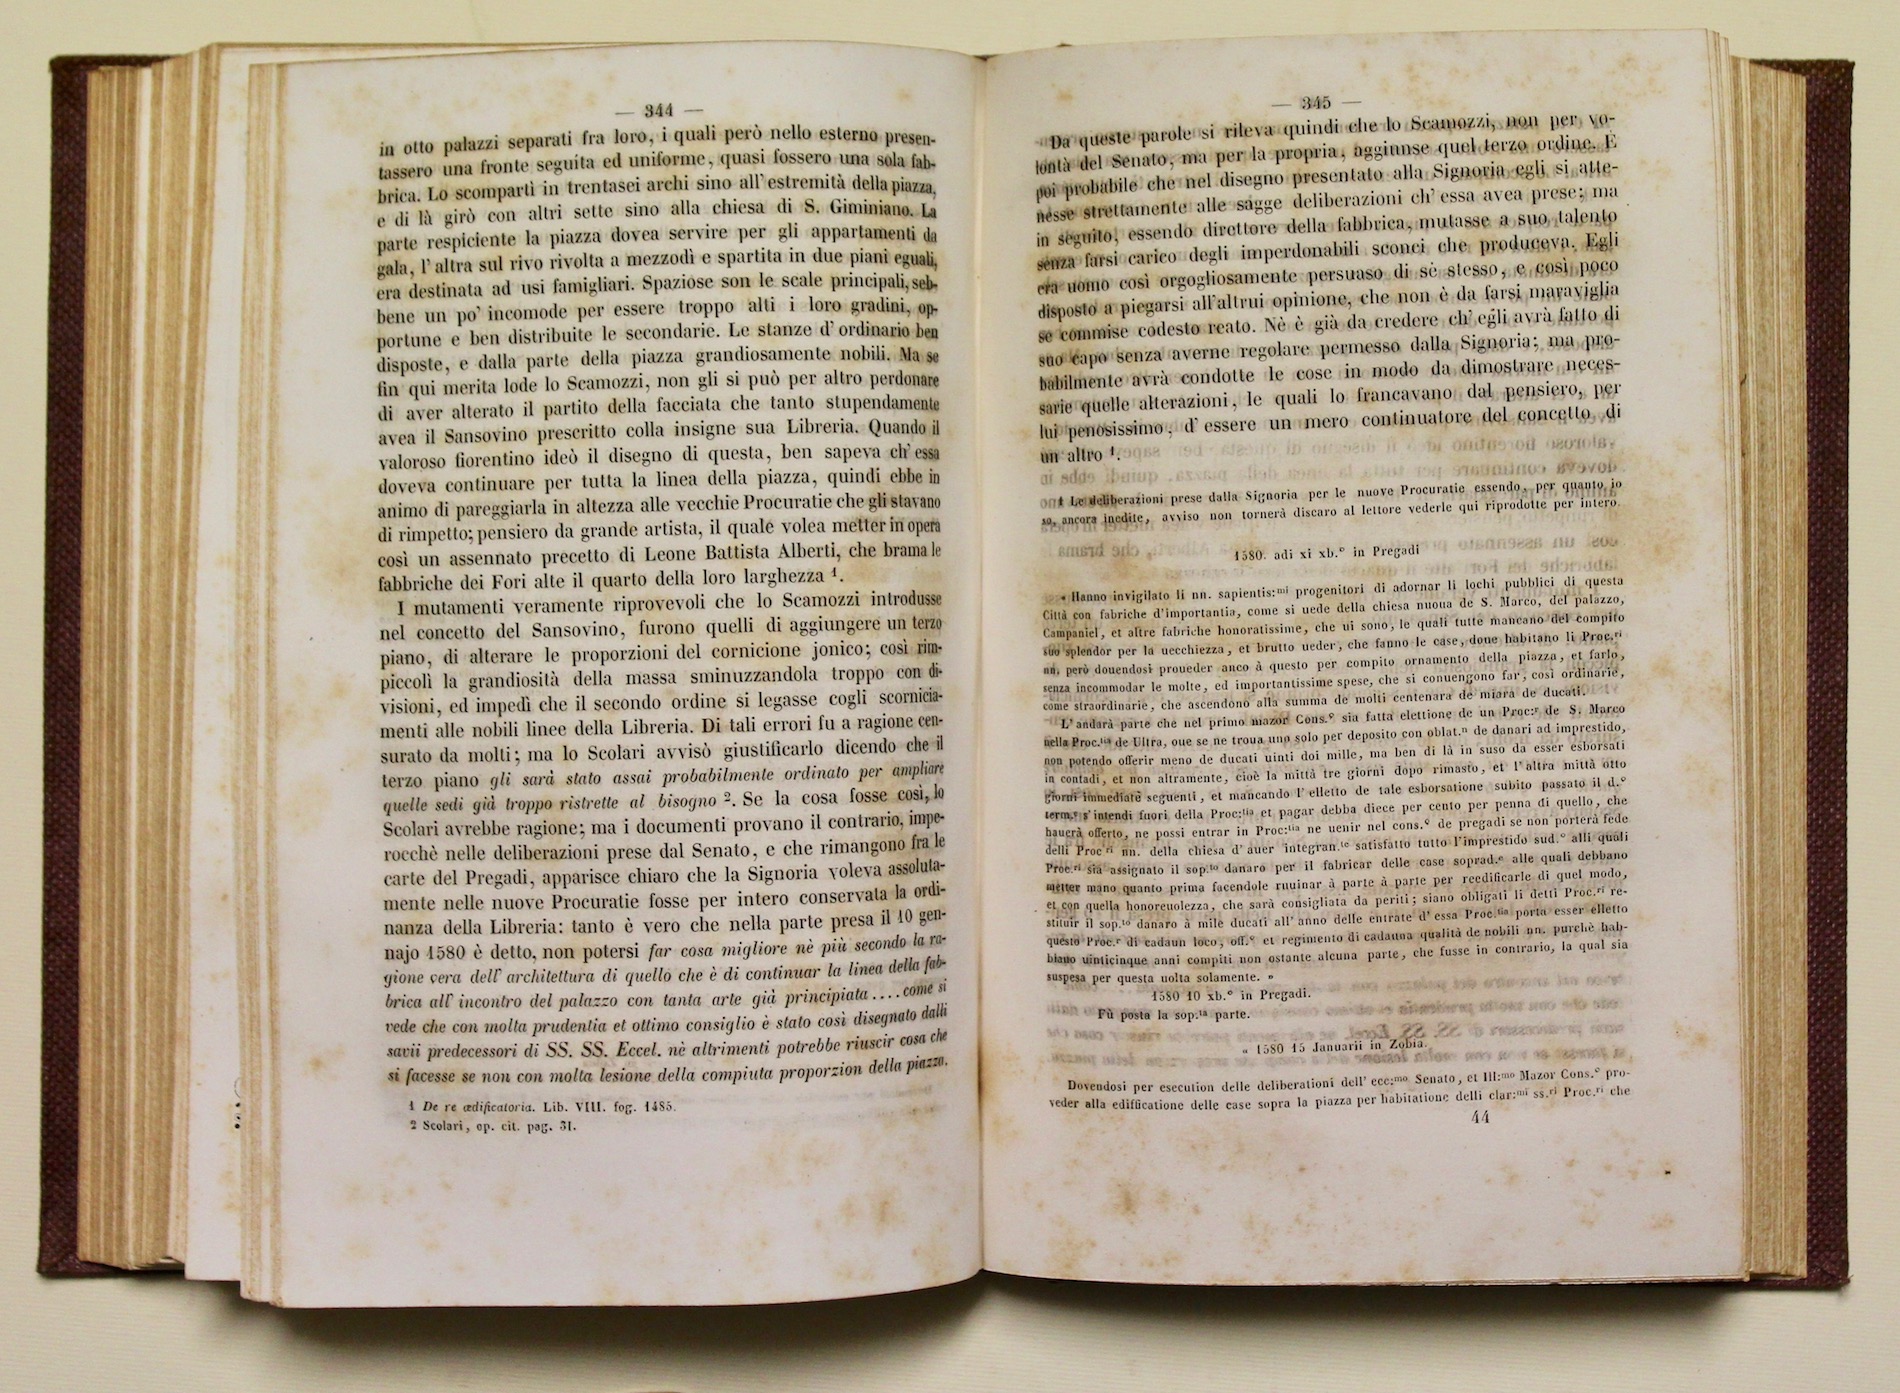 — 344 —
in otto palazzi separati fra loro, i quali però nello esterno presen-
tassero una fronte seguita ed uniforme, quasi fossero una sola fab-
brica. Lo scompartì in trentasei archi sino all'estremità della piazza,
e di là girò con altri sette sino alla chiesa di S. Giminiano. La
parte respiciente la piazza dovea servire per gli appartamenti da
gala, l'altra sul rivo rivolta a mezzodì e spartita in due piani eguali,
era destinata ad usi famigliari. Spaziose son le scale principali, seb-
bene un po' incomode per essere troppo alti i loro gradini, op-
portune e ben distribuite le secondarie. Le stanze d'ordinario ben
disposte, e dalla parte della piazza grandiosamente nobili. Ma se
fin qui merita lode lo Scamozzi, non gli si può per altro perdonare
di aver alterato il partito della facciata che tanto stupendamente
avea il Sansovino prescritto colla insigne sua Libreria. Quando il
valoroso fiorentino ideò il disegno di questa, ben sapeva ch'essa
doveva continuare per tutta la linea della piazza, quindi ebbe in
animo di pareggiarla in altezza alle vecchie Procuratie che gli stavano
di rimpetto; pensiero da grande artista, il quale volea metter in opera
così un assennato precetto di Leone Battista Alberti, che brama le
fabbriche dei Fori alte il quarto della loro larghezza 1.
I mutamenti veramente riprovevoli che lo Scamozzi introdusse
nel concetto del Sansovino, furono quelli di aggiungere un terzo
piano, di alterare le proporzioni del cornicione jonico; così rim-
piccolì la grandiosità della massa sminuzzandola troppo con di-
visioni, ed impedì che il secondo ordine si legasse cogli scornicia-
menti alle nobili linee della Libreria. Di tali errori fu a ragione cen-
surato da molti; ma lo Scolari avvisò giustificarlo dicendo che il
terzo piano gli sarà stato assai probabilmente ordinato per ampliare
quelle sedi già troppo ristrette al bisogno 2. Se la cosa fosse così, lo
Scolari avrebbe ragione; ma i documenti provano il contrario, impe-
rocchè nelle deliberazioni prese dal Senato, e che rimangono fra le
carte del Pregadi, apparisce chiaro che la Signoria voleva assoluta-
mente nelle nuove Procuratie fosse per intero conservata la ordi-
nanza della Libreria: tanto è vero che nella parte presa il 10 gen-
najo 1580 è detto, non potersi far cosa migliore nè più secondo la ra-
gione vera dell'architettura di quello che è di continuar la linea della fab-
brica all'incontro del palazzo con tanta arte già principiata .... come si
vede che con molta prudentia et ottimo consiglio è stato così disegnato dalli
savii predecessori di SS. SS. Eccel. nè altrimenti potrebbe riuscir cosa che
si facesse se non con molta lesione della compiuta proporzion della piazza.
1 De re ædificatoria. Lib. VIII. fog. 1485.
2 Scolari, op. cit. pag. 31.
— 345 —
Da queste parole si rileva quindi che lo Scamozzi, non per vo-
lontà del Senato, ma per la propria, aggiunse quel terzo ordine. È
poi probabile che nel disegno presentato alla Signoria egli si atte-
nesse strettamente alle sagge deliberazioni ch'essa avea prese; ma
in seguito, essendo direttore della fabbrica, mutasse a suo talento
senza farsi carico degli imperdonabili sconci che produceva. Egli
era uomo così orgogliosamente persuaso di sè stesso, e così poco
disposto a piegarsi all'altrui opinione, che non è da farsi maraviglia
se commise codesto reato. Nè è già da credere ch'egli avrà fatto di
suo capo senza averne regolare permesso dalla Signoria; ma pro-
babilmente avrà condotte le cose in modo da dimostrare neces-
sarie quelle alterazioni, le quali lo francavano dal pensiero, per
lui penosissimo, d'essere un mero continuatore del concetto di
un altro 1.
1 Le deliberazioni prese dalla Signoria per le nuove Procuratie essendo, per quanto io
so, ancora inedite, avviso non tornerà discaro al lettore vederle qui riprodotte per intero.
1580. adi xi xb.e in Pregadi
« Hanno invigilato li nn. sapientis:mi progenitori di adornar li lochi pubblici di questa
Città con fabriche d'importantia, come si uede della chiesa nuoua de S. Marco, del palazzo,
Campaniel, et altre fabriche honoratissime, che ui sono, le quali tutte mancano del compito
suo splendor per la uecchiezza, et brutto ueder, che fanno le case, doue habitano li Proc.ri
nn. però douendosi proueder anco à questo per compito ornamento della piazza, et farlo,
senza incommodar le molte, ed importantissime spese, che si conuengono far, così ordinarie,
come straordinarie, che ascendono alla summa de molti centenara de miara de ducati.
L'andarà parte che nel primo mazor Cons.o sia fatta elettione de un Proc:r de S. Marco
nella Proc.tia de Ultra, oue se ne troua uno solo per deposito con oblat.n de danari ad imprestido,
non potendo offerir meno de ducati uinti doi mille, ma ben di là in suso da esser esborsati
in contadi, et non altramente, cioè la mittà tre giorni dopo rimasto, et l'altra mittà otto
giorni immediatè seguenti, et mancando l'elletto de tale esborsatione subito passato il d.o
term.e s'intendi fuori della Proc:tia et pagar debba diece per cento per penna di quello, che
hauerà offerto, ne possi entrar in Proc:tia ne uenir nel cons.o de pregadi se non porterà fede
delli Proc ri nn. della chiesa d'auer integran.te satisfatto tutto l'imprestido sud.o alli quali
Proc.ri sia assignato il sop.to danaro per il fabricar delle case soprad.e alle quali debbano
metter mano quanto prima facendole ruuinar à parte à parte per reedificarle di quel modo,
et con quella honoreuolezza, che sarà consigliata da periti; siano obligati li detti Proc.ri re-
stituir il sop.to danaro à mile ducati all'anno delle entrate d'essa Proc.tia porta esser elletto
questo Proc.r di cadaun loco, off.o et regimento di cadauna qualità de nobili nn. purchè hab-
biano uinticinque anni compiti non ostante alcuna parte, che fusse in contrario, la qual sia
suspesa per questa uolta solamente. »
1580 10 xb.e in Pregadi.
Fù posta la sop.ta parte.
« 1580 15 Januarii in Zobia.
Dovendosi per esecution delle deliberationi dell'ecc:mo Senato, et Ill:mo Mazor Cons.o pro-
veder alla edifficatione delle case sopra la piazza per habitatione delli clar:mi ss.ri Proc.ri che
44